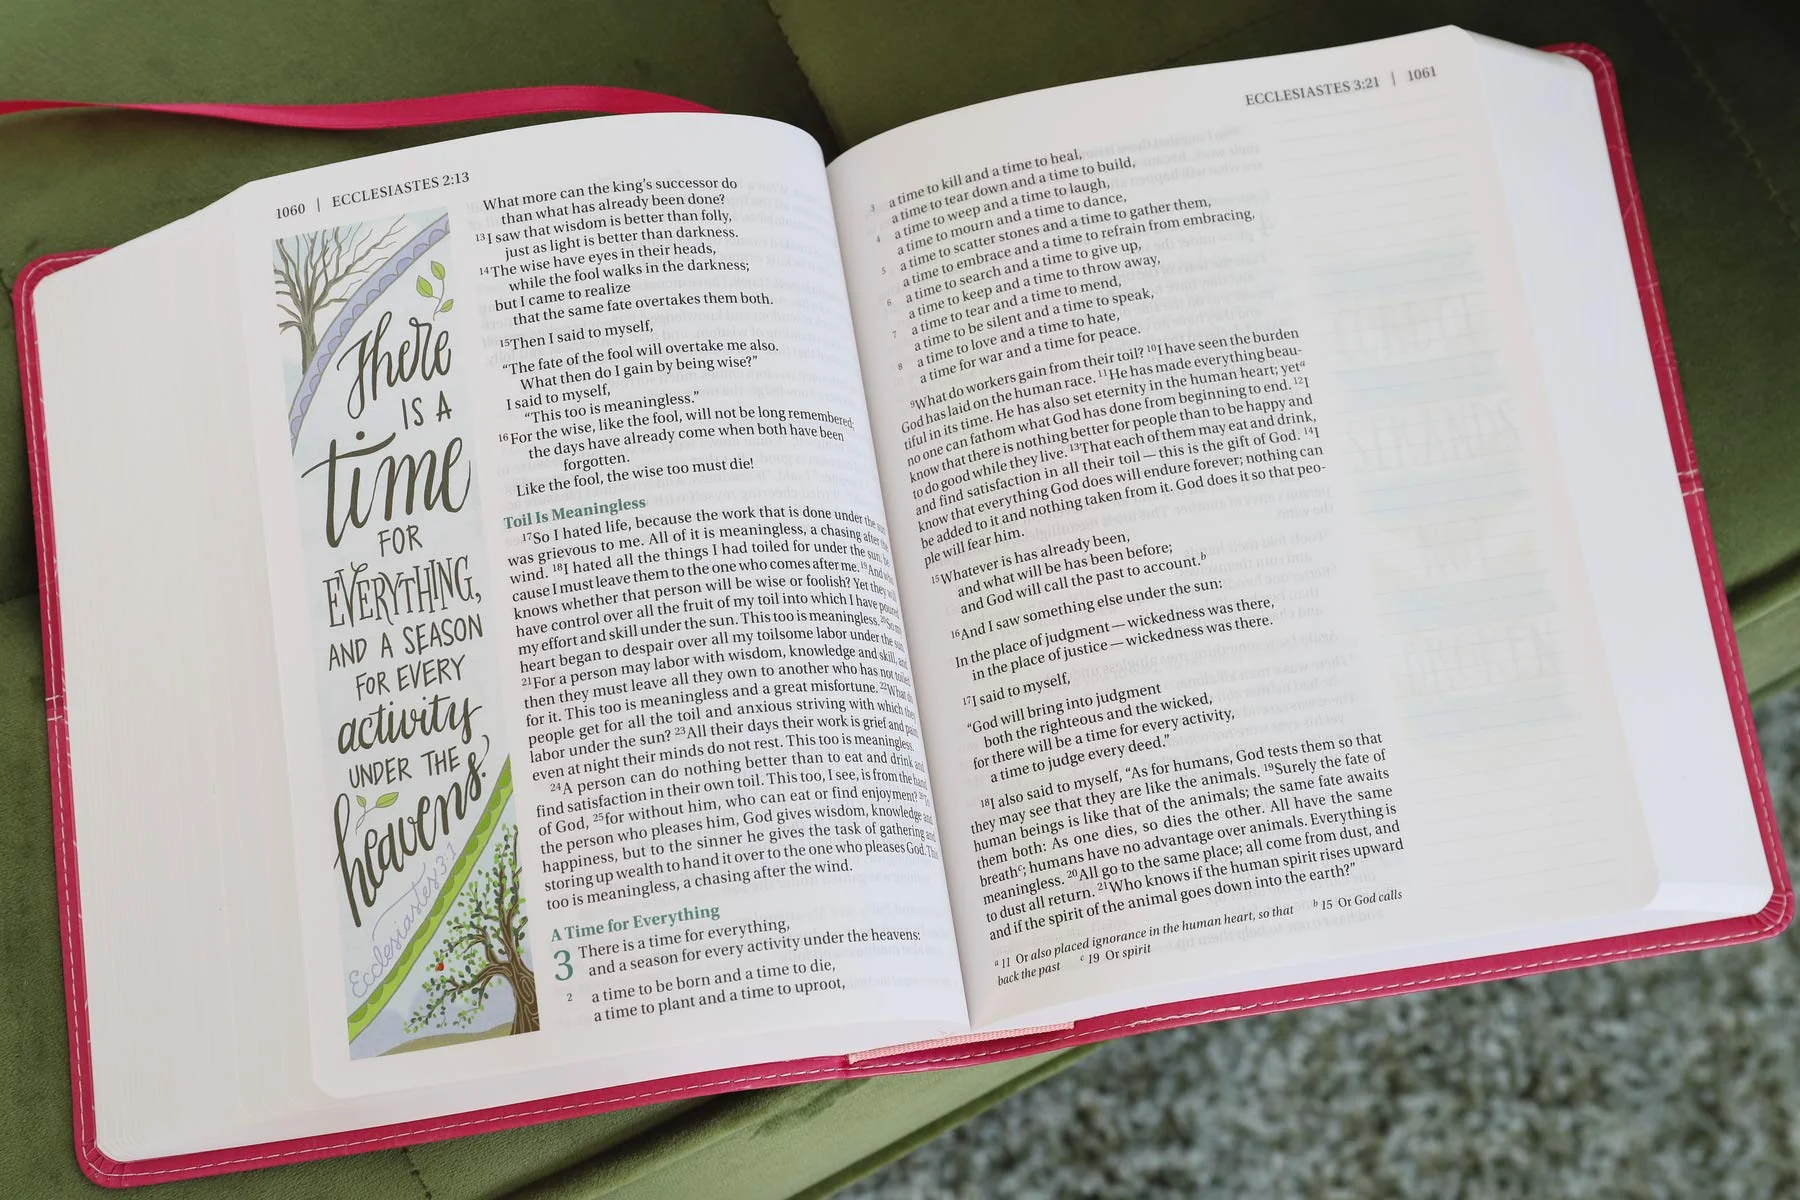 1060 | ECCLESIASTES 2:13
There
IS A
time
FOR
EVERYTHING,
AND A SEASON
FOR EVERY
activity
UNDER THE
heavens.
Ecclesiastes 3:1
What more can the king's successor do
than what has already been done?
13 I saw that wisdom is better than folly,
just as light is better than darkness.
14 The wise have eyes in their heads,
while the fool walks in the darkness;
but I came to realize
that the same fate overtakes them both.
15 Then I said to myself,
“The fate of the fool will overtake me also.
What then do I gain by being wise?”
I said to myself,
“This too is meaningless.”
16 For the wise, like the fool, will not be long remembered;
the days have already come when both have been
forgotten.
Like the fool, the wise too must die!
Toil Is Meaningless
17 So I hated life, because the work that is done under the sun
was grievous to me. All of it is meaningless, a chasing after the
wind. 18 I hated all the things I had toiled for under the sun, be-
cause I must leave them to the one who comes after me. 19 And who
knows whether that person will be wise or foolish? Yet they will
have control over all the fruit of my toil into which I have poured
my effort and skill under the sun. This too is meaningless. 20 So my
heart began to despair over all my toilsome labor under the sun.
21 For a person may labor with wisdom, knowledge and skill, and
then they must leave all they own to another who has not toiled
for it. This too is meaningless and a great misfortune. 22 What do
people get for all the toil and anxious striving with which they
labor under the sun? 23 All their days their work is grief and pain;
even at night their minds do not rest. This too is meaningless.
24 A person can do nothing better than to eat and drink and
find satisfaction in their own toil. This too, I see, is from the hand
of God, 25 for without him, who can eat or find enjoyment? 26 To
the person who pleases him, God gives wisdom, knowledge and
happiness, but to the sinner he gives the task of gathering and
storing up wealth to hand it over to the one who pleases God. This
too is meaningless, a chasing after the wind.
A Time for Everything
3 There is a time for everything,
and a season for every activity under the heavens:
2 a time to be born and a time to die,
a time to plant and a time to uproot,
ECCLESIASTES 3:21 | 1061
3 a time to kill and a time to heal,
a time to tear down and a time to build,
4 a time to weep and a time to laugh,
a time to mourn and a time to dance,
5 a time to scatter stones and a time to gather them,
a time to embrace and a time to refrain from embracing,
6 a time to search and a time to give up,
a time to keep and a time to throw away,
7 a time to tear and a time to mend,
a time to be silent and a time to speak,
8 a time to love and a time to hate,
a time for war and a time for peace.
9 What do workers gain from their toil? 10 I have seen the burden
God has laid on the human race. 11 He has made everything beau-
tiful in its time. He has also set eternity in the human heart; yet a
no one can fathom what God has done from beginning to end. 12 I
know that there is nothing better for people than to be happy and
to do good while they live. 13 That each of them may eat and drink,
and find satisfaction in all their toil — this is the gift of God. 14 I
know that everything God does will endure forever; nothing can
be added to it and nothing taken from it. God does it so that peo-
ple will fear him.
15 Whatever is has already been,
and what will be has been before;
and God will call the past to account. b
16 And I saw something else under the sun:
In the place of judgment — wickedness was there,
in the place of justice — wickedness was there.
17 I said to myself,
“God will bring into judgment
both the righteous and the wicked,
for there will be a time for every activity,
a time to judge every deed.”
18 I also said to myself, “As for humans, God tests them so that
they may see that they are like the animals. 19 Surely the fate of
human beings is like that of the animals; the same fate awaits
them both: As one dies, so dies the other. All have the same
breath c; humans have no advantage over animals. Everything is
meaningless. 20 All go to the same place; all come from dust, and
to dust all return. 21 Who knows if the human spirit rises upward
and if the spirit of the animal goes down into the earth?”
a 11 Or also placed ignorance in the human heart, so that b 15 Or God calls
back the past c 19 Or spirit